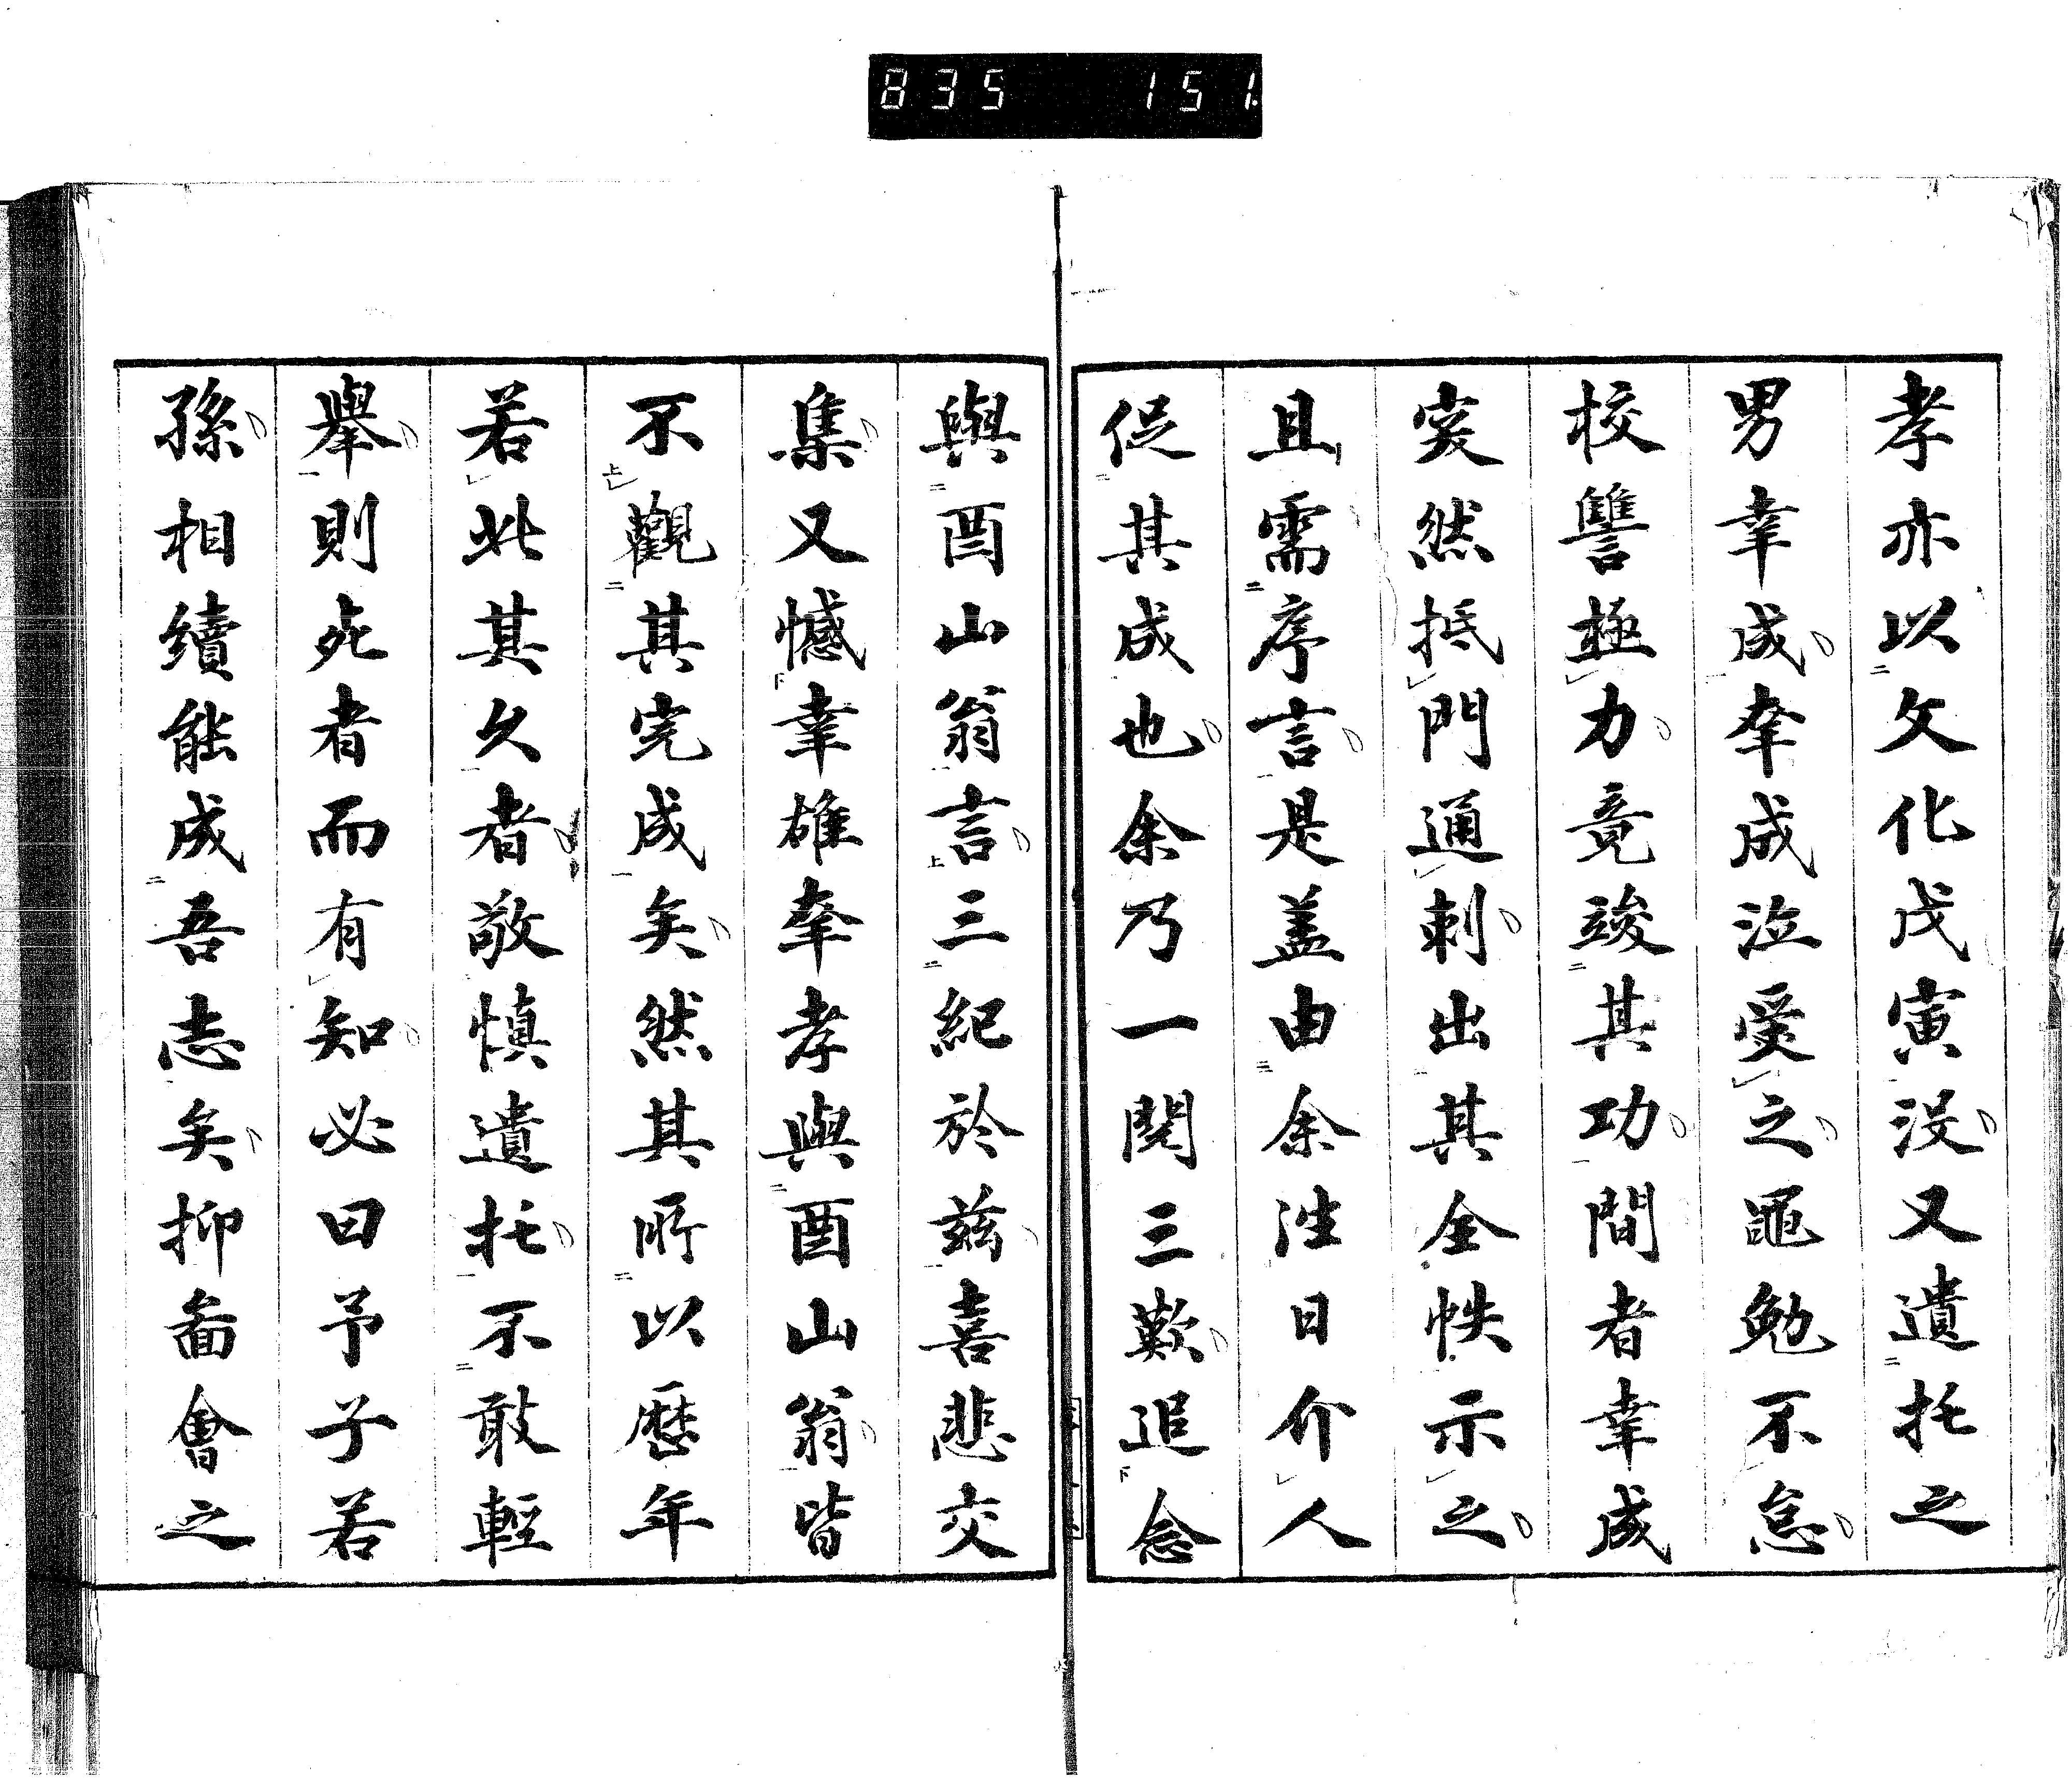 835 151
孝亦以文化戊寅没又遺托之
男幸成牽成泣愛之黽勉不怠
校讐極力竟竣其功間者幸成
突然抵門通刺出其全帙示之
且需序言是盖由余往日介人
促其成也余乃一閲三歎追念
與酉山翁言三紀於兹喜悲交
集又憾幸雄牽孝與酉山翁皆
不觀其完成矣然其所以歴年
若此其久者敬慎遺托不敢輕
舉則死者而有知必曰予子若
孫相續能成吾志矣抑畜會之